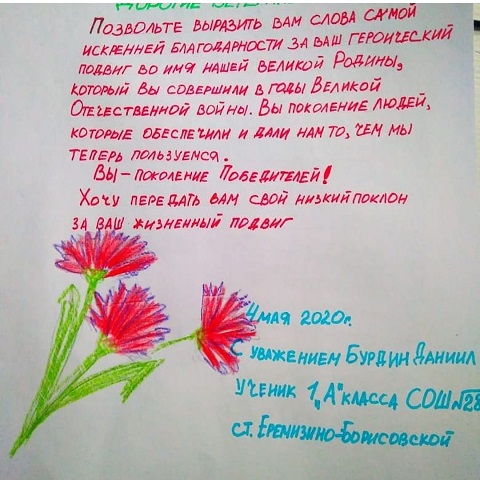 Позвольте выразить Вам слова самой
искренней благодарности за ваш героический
подвиг во имя нашей великой Родины,
который Вы совершили в годы Великой
Отечественной войны. Вы поколение людей,
которые обеспечили и дали нам то, чем мы
теперь пользуемся.
Вы – поколение Победителей!
Хочу передать вам свой низкий поклон
за ваш жизненный подвиг
4 мая 2020г.
С уважением Бурдин Даниил
ученик 1 „А" класса СОШ №28
ст. Еремизино-Борисовской